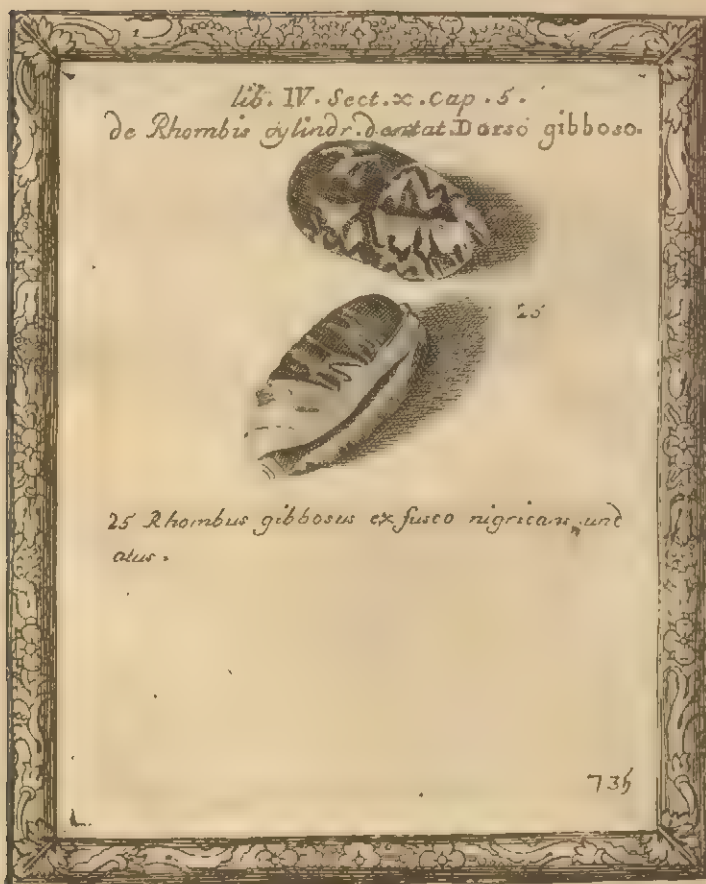 lib. IV. Sect. x. Cap. 5.
de Rhombis cylindr. dentat. Dorso gibboso.
25
25 Rhombus gibbosus ex fusco nigricans, und
atus.